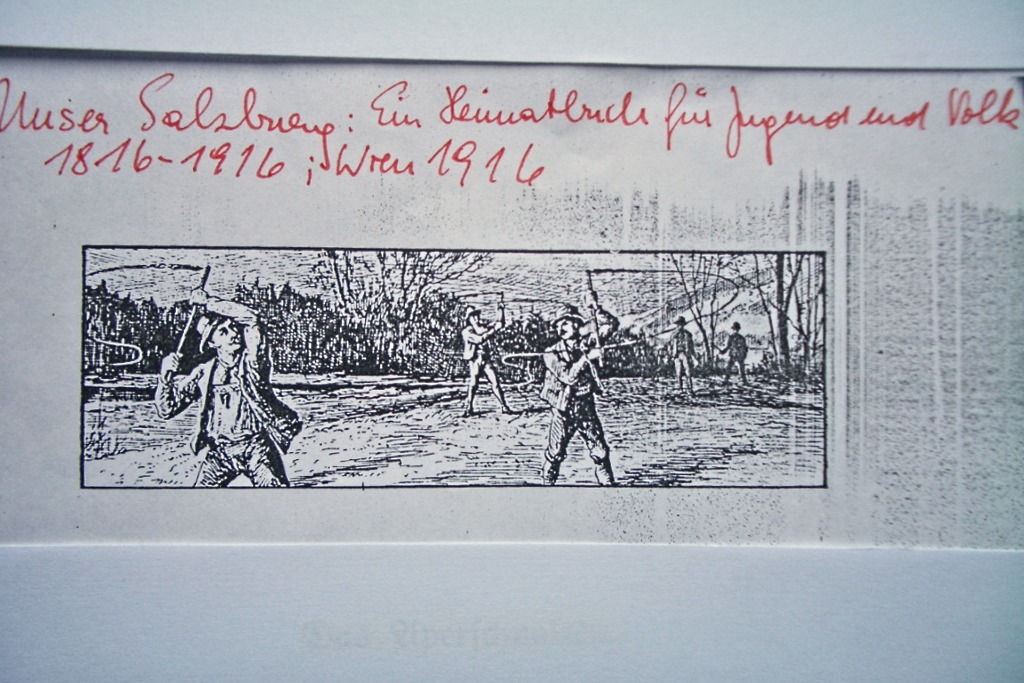 Unser Salzburg: Ein Heimatbuch für Jugend und Volk
1816-1916; Wien 1916
Das Aperschnalzen